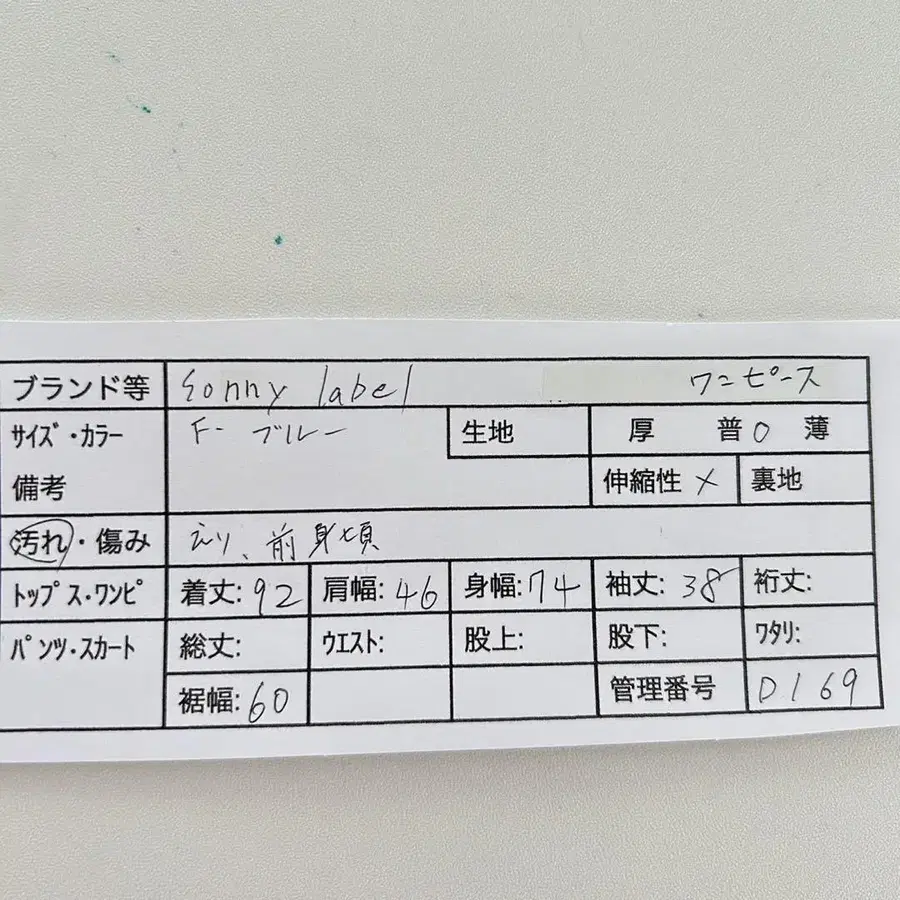 ブランド等 Sonny label ワンピース
サイズ・カラー F- ブルー 生地 厚 普○ 薄
備考 伸縮性 × 裏地
汚れ・傷み えり、前身頃
トップス・ワンピ 着丈: 92 肩幅: 46 身幅: 74 袖丈: 38 裄丈:
パンツ・スカート 総丈: ウエスト: 股上: 股下: ワタリ:
裾幅: 60 管理番号 D169